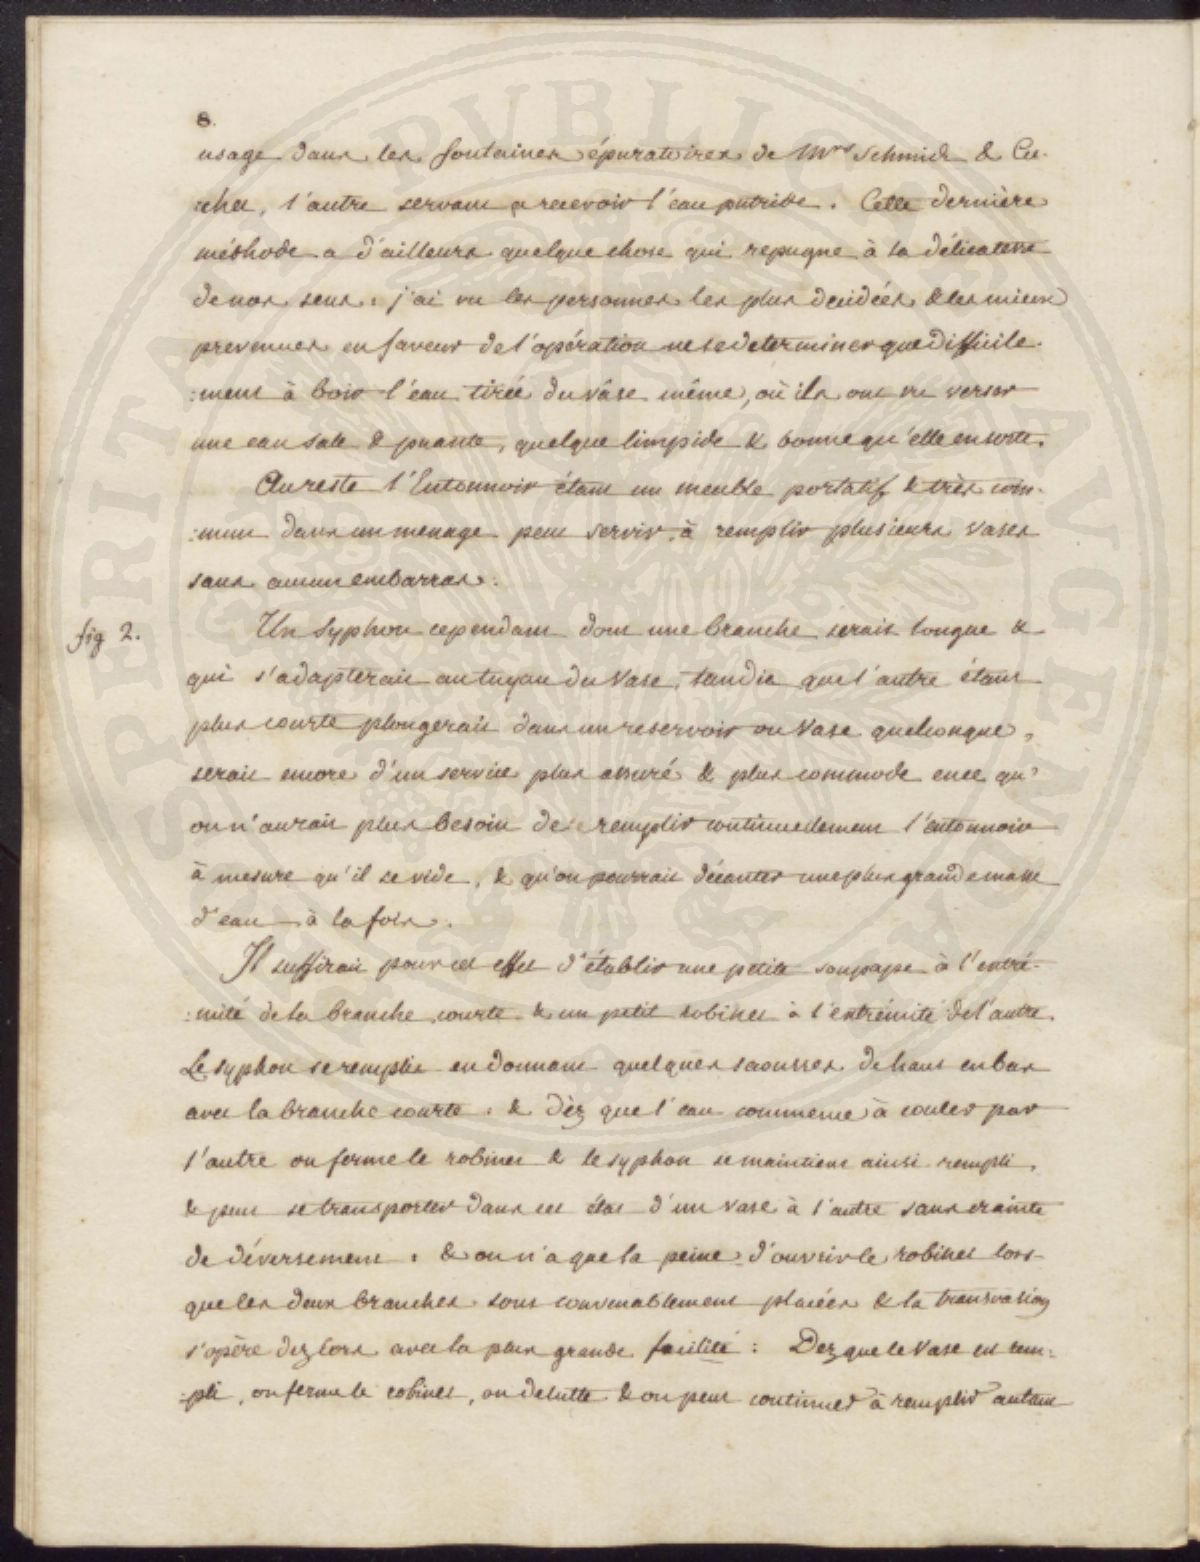 8.
usage dans les fontaines épuratoires de Mrs Schmidt & Cu-
:chet, l'autre servant a recevoir l'eau putride. Cette dernière
méthode a d'ailleurs quelque chose qui repugne à la délicatesse
de nos sens: j'ai vu les personnes les plus decidées & les mieux
prevenues en faveur de l'opération ne se determiner que difficile-
:ment à boir l'eau tirée du vâse même, où ils ont vu verser
une eau sale & puante, quelque limpide & bonne qu'elle en sorte.
Au reste l'Entonnoir étant un meuble portatif & très com-
:mun dans un menage peut servir à remplir plusieurs vases
sans aucun embarras.
fig 2.
Un Syphon cependant dont une branche serait longue &
qui s'adapterait au tuyau du Vase, tandis que l'autre étant
plus courte plongerait dans un reservoir ou Vase quelconque,
serait encore d'un service plus assuré & plus commode en ce qu'
on n'aurait plus besoin de remplir continuellement l'entonnoir
à mesure qu'il se vide, & qu'on pourrait décanter une plus grande masse
d'eau à la fois.
Il suffirait pour cet effet d'établir une petite soupape à l'extré-
:mité de la branche courte & un petit robinet à l'extrémité de l'autre.
Le syphon se remplit en donnant quelques saousses de haut en bas
avec la branche courte: & dèz que l'eau commence à couler par
l'autre on ferme le robinet & le syphon se maintient ainsi rempli,
& peut se transporter dans cet état d'un vase à l'autre sans crainte
de déversement: & on n'a que la peine d'ouvrir le robinet lors
que les deux branches sont convenablement placées & la transvasion
s'opère dez lors avec la plus grande facilité: Dez que le Vase est rem:
:pli, on ferme le robinet, on delutte & on peut continuer à remplir autant